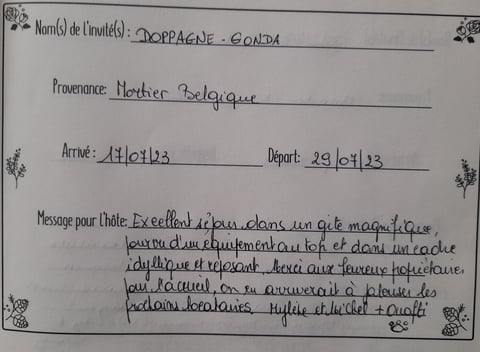 Nom(s) de l'invité(s) : DOPPAGNE - GONDA
Provenance: Mortier Belgique
Arrivé : 17/07/23 Départ: 29/07/23
Message pour l'hôte: Excellent séjour dans un gîte magnifique,
pourvu d'un équipement au top et dans un cadre
idyllique et reposant. Merci aux heureux propriétaires
pour l'accueil, on en arriverait à jalouser les
prochains locataires. Mylène et Michel +